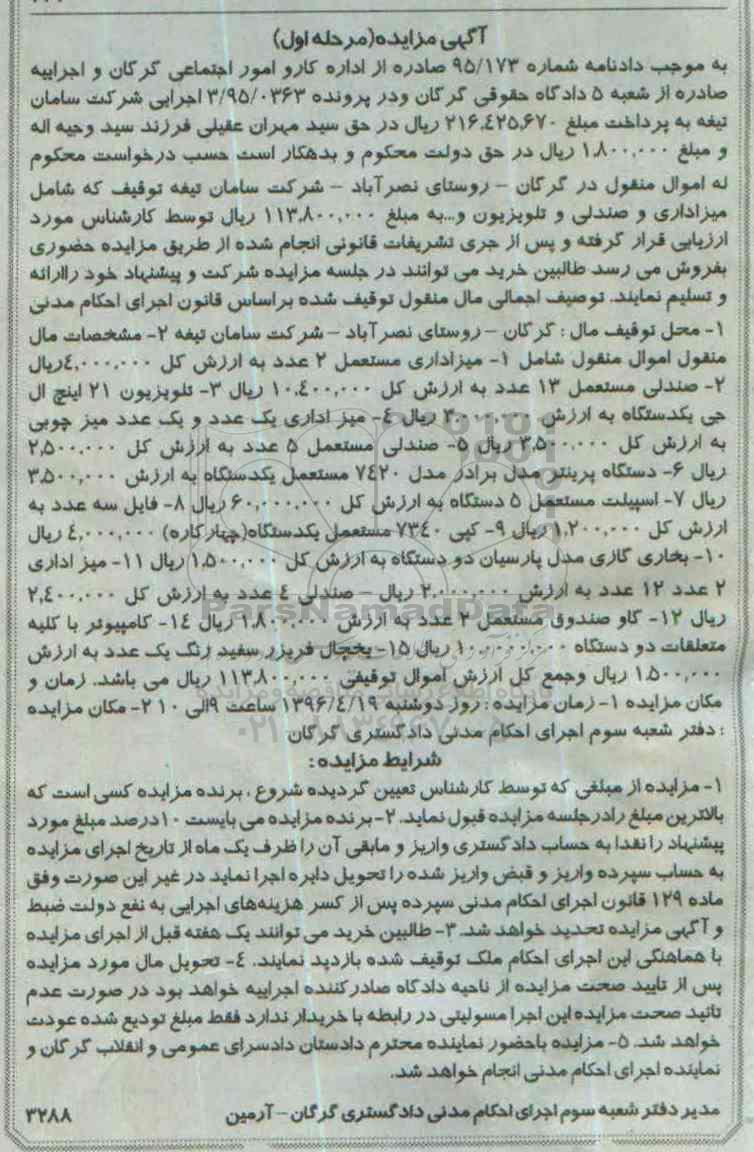 آگهی مزایده(مرحله اول)
به موجب دادنامه شماره ۹۵/۱۷۳ صادره از اداره کارو امور اجتماعی گرگان و اجراییه
صادره از شعبه ۵ دادگاه حقوقی گرگان ودر پرونده ۳/۹۵/۰۳۶۳ اجرایی شرکت سامان
تیغه به پرداخت مبلغ ۲۱۶,۴۲۵,۶۷۰ ریال در حق سید مهران عقیلی فرزند سید وجیه اله
و مبلغ ۱,۸۰۰,۰۰۰ ریال در حق دولت محکوم و بدهکار است حسب درخواست محکوم
له اموال منقول در گرگان – روستای نصرآباد – شرکت سامان تیغه توقیف که شامل
میزاداری و صندلی و تلویزیون و...به مبلغ ۱۱۳,۸۰۰,۰۰۰ ریال توسط کارشناس مورد
ارزیابی قرار گرفته و پس از جری تشریفات قانونی انجام شده از طریق مزایده حضوری
بفروش می رسد طالبین خرید می توانند در جلسه مزایده شرکت و پیشنهاد خود راارائه
و تسلیم نمایند. توصیف اجمالی مال منقول توقیف شده براساس قانون اجرای احکام مدنی
۱- محل توقیف مال : گرگان – روستای نصرآباد – شرکت سامان تیغه ۲- مشخصات مال
منقول اموال منقول شامل ۱- میزاداری مستعمل ۲ عدد به ارزش کل ۴,۰۰۰,۰۰۰ریال
۲- صندلی مستعمل ۱۳ عدد به ارزش کل ۱۰,۴۰۰,۰۰۰ ریال ۳- تلویزیون ۲۱ اینچ ال
جی یکدستگاه به ارزش ۳,۰۰۰,۰۰۰ ریال ۴- میز اداری یک عدد و یک عدد میز چوبی
به ارزش کل ۳,۵۰۰,۰۰۰ ریال ۵- صندلی مستعمل ۵ عدد به ارزش کل ۲,۵۰۰,۰۰۰
ریال ۶- دستگاه پرینتر مدل برادر مدل ۷۴۲۰ مستعمل یکدستگاه به ارزش ۳,۵۰۰,۰۰۰
ریال ۷- اسپیلت مستعمل ۵ دستگاه به ارزش کل ۶۰,۰۰۰,۰۰۰ ریال ۸- فایل سه عدد به
ارزش کل ۱,۲۰۰,۰۰۰ ریال ۹- کپی ۷۳۴۰ مستعمل یکدستگاه(چهارکاره) ۴,۰۰۰,۰۰۰ ریال
۱۰- بخاری گازی مدل پارسیان دو دستگاه به ارزش کل ۱,۵۰۰,۰۰۰ ریال ۱۱- میز اداری
۲ عدد ۱۲ عدد به ارزش ۲,۰۰۰,۰۰۰ ریال – صندلی ۴ عدد به ارزش کل ۲,۴۰۰,۰۰۰
ریال ۱۳- گاو صندوق مستعمل ۲ عدد به ارزش ۱,۸۰۰,۰۰۰ ریال ۱۴- کامپیوتر با کلیه
متعلقات دو دستگاه ۱۰,۰۰۰,۰۰۰ ریال ۱۵- یخچال فریزر سفید رنگ یک عدد به ارزش
۱,۵۰۰,۰۰۰ ریال وجمع کل ارزش اموال توقیفی ۱۱۳,۸۰۰,۰۰۰ ریال می باشد. زمان و
مکان مزایده ۱- زمان مزایده : روز دوشنبه ۱۳۹۶/۴/۱۹ ساعت ۹الی ۱۰ ۲- مکان مزایده
: دفتر شعبه سوم اجرای احکام مدنی دادگستری گرگان
شرایط مزایده :
۱- مزایده از مبلغی که توسط کارشناس تعیین گردیده شروع ، برنده مزایده کسی است که
بالاترین مبلغ رادرجلسه مزایده قبول نماید. ۲- برنده مزایده می بایست ۱۰درصد مبلغ مورد
پیشنهاد را نقدا به حساب دادگستری واریز و مابقی آن را ظرف یک ماه از تاریخ اجرای مزایده
به حساب سپرده واریز و قبض واریز شده را تحویل دایره اجرا نماید در غیر این صورت وفق
ماده ۱۲۹ قانون اجرای احکام مدنی سپرده پس از کسر هزینه‌های اجرایی به نفع دولت ضبط
و آگهی مزایده تجدید خواهد شد. ۳- طالبین خرید می توانند یک هفته قبل از اجرای مزایده
با هماهنگی این اجرای احکام ملک توقیف شده بازدید نمایند. ۴- تحویل مال مورد مزایده
پس از تایید صحت مزایده از ناحیه دادگاه صادرکننده اجراییه خواهد بود در صورت عدم
تائید صحت مزایده این اجرا مسولیتی در رابطه با خریدار ندارد فقط مبلغ تودیع شده عودت
خواهد شد. ۵- مزایده باحضور نماینده محترم دادستان دادسرای عمومی و انقلاب گرگان و
نماینده اجرای احکام مدنی انجام خواهد شد.
مدیر دفتر شعبه سوم اجرای احکام مدنی دادگستری گرگان – آرمین
۳۲۸۸
ParsNamadData